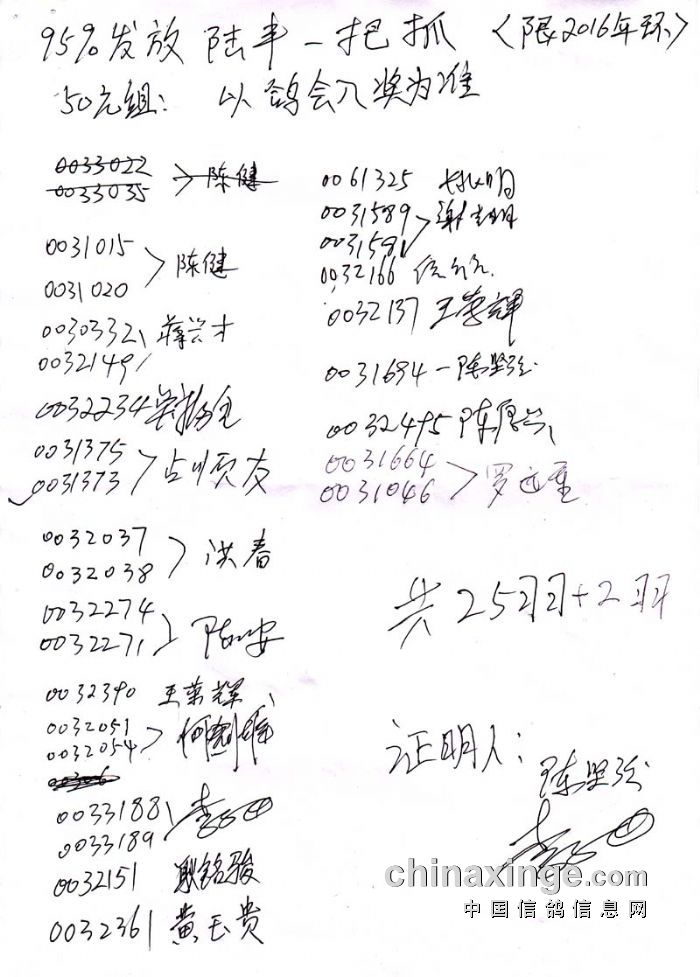 95%发放 陆丰一把抓 〈限2016年环〉
50元组: 以鸽会入奖为准
0033022
0033035 陈健
0031015
0031020 陈健
0030332
0032149 蒋兴才
0032234
0031375
0031373 占顺友
0032037
0032038 洪春
0032274
0032271
0032390 王荣辉
0032051
0032054
0033188
0033189
0032151 耿铭骏
0032361 黄玉贵
0061325 明
0031589 谢
0031581
0032166
0032137 王荣辉
0031684 陈坚强
0032495 陈
0031664
0031046 罗
共25羽+2羽
证明人:
陈坚强
chinaxinge.com
中国信鸽信息网